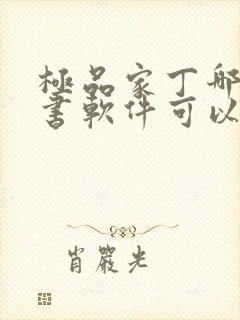 極品家丁哪
書軟件可以
肖嚴光